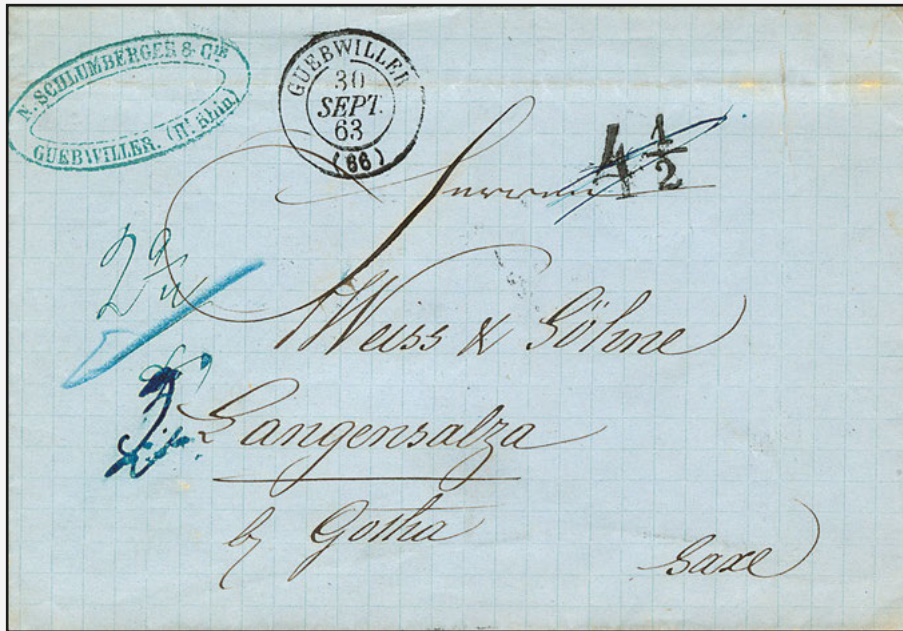 N. SCHLUMBERGER & CIE
GUEBWILLER. (Ht. Rhin)
GUEBWILLER
30
SEPT.
63
(66)
4 1/2
Herren
Weiss & Söhne
Langensalza
by Gotha
Saxe